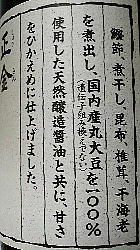 鰹節、煮干し、昆布、椎茸、干海老
を煮出し、国内産丸大豆を一〇〇%
(遺伝子組み換えでない)
使用した天然醸造醤油と共に、甘さ
をひかえめに仕上げました。